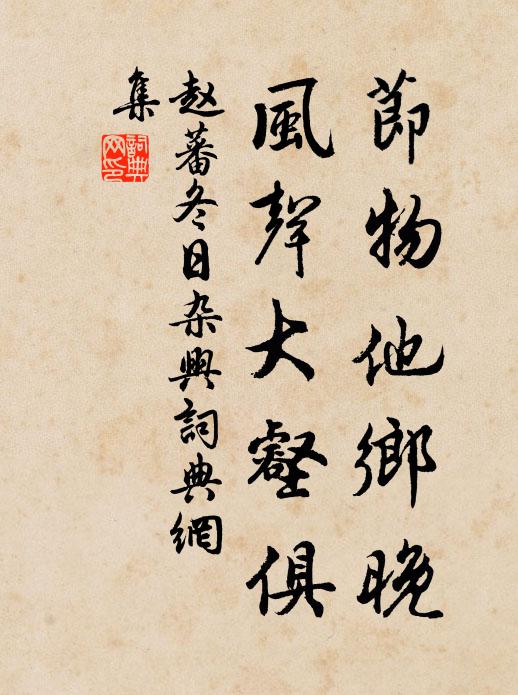 節物他鄉晚
風聲大壑俱
赵蕃冬日杂興詞典網
集
詞典
网印